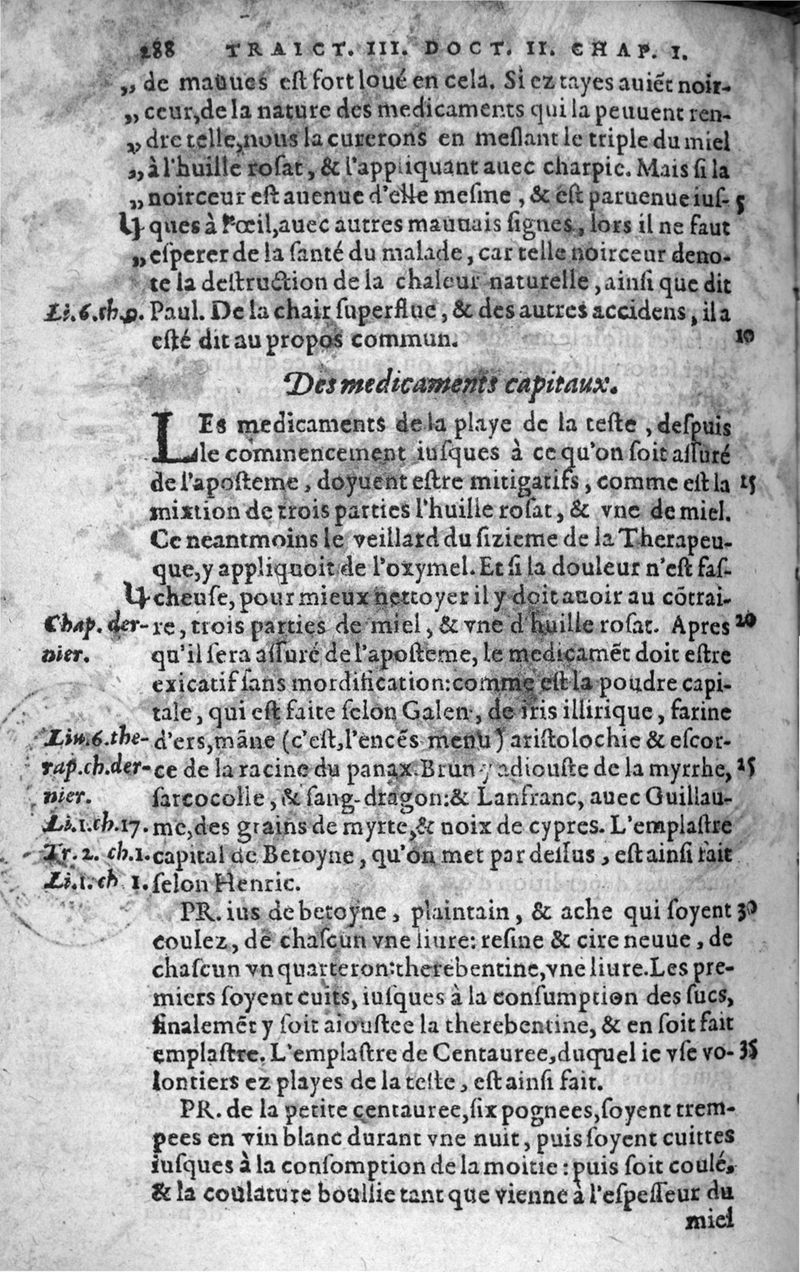 288 TRAICT. III. DOCT. II. CHAP. I.
„ de mauues est fort loué en cela. Si ez tayes auiẽt noir-
„ ceur, de la nature des medicaments qui la peuuent ren-
„ dre telle, nous la curerons en meslant le triple du miel
„ à l'huille rosat, & l'appliquant auec charpie. Mais si la
„ noirceur est auenue d'elle mesme, & est paruenue ius- 5
ques à l'œil, auec autres mauuais signes, lors il ne faut
„ esperer de la santé du malade, car telle noirceur deno-
te la destruction de la chaleur naturelle, ainsi que dit
Li. 6. ch. 9. Paul. De la chair superflue, & des autres accidens, il a
esté dit au propos commun. 10
Des medicaments capitaux.
LEs medicaments de la playe de la teste, despuis
le commencement iusques à ce qu'on soit assuré
de l'aposteme, doyuent estre mitigatifs, comme est la 15
mixtion de trois parties l'huille rosat, & vne de miel.
Ce neantmoins le veillard du sizieme de la Therapeu-
que, y appliquoit de l'oxymel. Et si la douleur n'est fas-
cheuse, pour mieux nettoyer il y doit auoir au cõtrai-
Chap. der- re, trois parties de miel, & vne d'huille rosat. Apres 20
nier. qu'il sera assuré de l'aposteme, le medicamẽt doit estre
exicatif sans mordification: comme est la poudre capi-
tale, qui est faite selon Galen, de iris illirique, farine
Liu. 6. the- d'ers, mãne (c'est, l'encés menu) aristolochie & escor-
rap. ch. der- ce de la racine du panax. Brun y adiouste de la myrrhe, 25
nier. sarcocolle, & sang-dragon: & Lanfranc, auec Guillau-
Li. 1. ch. 17. me, des grains de myrte, & noix de cypres. L'emplastre
Tr. 2. ch. 1. capital de Betoyne, qu'on met par dessus, est ainsi fait
Li. 1. ch 1. selon Henric.
PR. ius de betoyne, plaintain, & ache qui soyent 30
coulez, de chascun vne liure: resine & cire neuue, de
chascun vn quarteron: therebentine, vne liure. Les pre-
miers soyent cuits, iusques à la consumption des sucs,
finalemẽt y soit aioustee la therebentine, & en soit fait
emplastre. L'emplastre de Centauree, duquel ie vse vo- 35
lontiers ez playes de la teste, est ainsi fait.
PR. de la petite centauree, six pognees, soyent trem-
pees en vin blanc durant vne nuit, puis soyent cuittes
iusques à la consomption de la moitie: puis soit coulé,
& la coulature boullie tant que vienne à l'espesseur du
miel